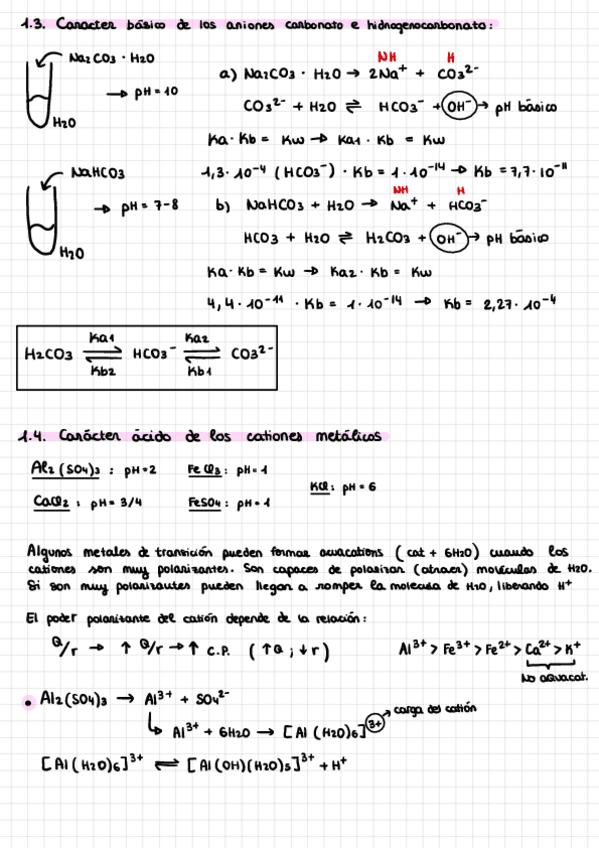 1.3. Caracter básico de los aniones carbonato e hidrogenocarbonato:
Na2CO3 · H2O
→ pH = 10
H2O
NH H
a) Na2CO3 · H2O → 2Na⁺ + CO3²⁻
CO3²⁻ + H2O ⇌ HCO3⁻ + OH⁻ → pH básico
Ka · Kb = Kw → Ka1 · Kb = Kw
1,3 · 10⁻⁴ (HCO3⁻) · Kb = 1 · 10⁻¹⁴ → Kb = 7,7 · 10⁻¹¹
NaHCO3
→ pH = 7-8
H2O
NH H
b) NaHCO3 + H2O → Na⁺ + HCO3⁻
HCO3 + H2O ⇌ H2CO3 + OH⁻ → pH básico
Ka · Kb = Kw → Ka2 · Kb = Kw
4,4 · 10⁻¹¹ · Kb = 1 · 10⁻¹⁴ → Kb = 2,27 · 10⁻⁴
Ka1 Ka2
H2CO3 ⇌ HCO3⁻ ⇌ CO3²⁻
Kb2 Kb1
1.4. Carácter ácido de los cationes metálicos
Al2(SO4)3 : pH=2 FeCl3 : pH=1
KCl : pH=6
CaCl2 : pH= 3/4 FeSO4 : pH=1
Algunos metales de transición pueden formar acuacations (cat + 6H2O) cuando los
cationes son muy polarizantes. Son capaces de polarizar (atraer) moléculas de H2O.
Si son muy polarizantes pueden llegar a romper la molecula de H2O, liberando H⁺
El poder polarizante del catión depende de la relación:
Q/r → ↑ Q/r → ↑ C.P. (↑Q ; ↓r) Al³⁺ > Fe³⁺ > Fe²⁺ > Ca²⁺ > K⁺
No acuacat.
• Al2(SO4)3 → Al³⁺ + SO4²⁻
carga del catión
↳ Al³⁺ + 6H2O → [Al(H2O)6]³⁺
[Al(H2O)6]³⁺ ⇌ [Al(OH)(H2O)5]³⁺ + H⁺